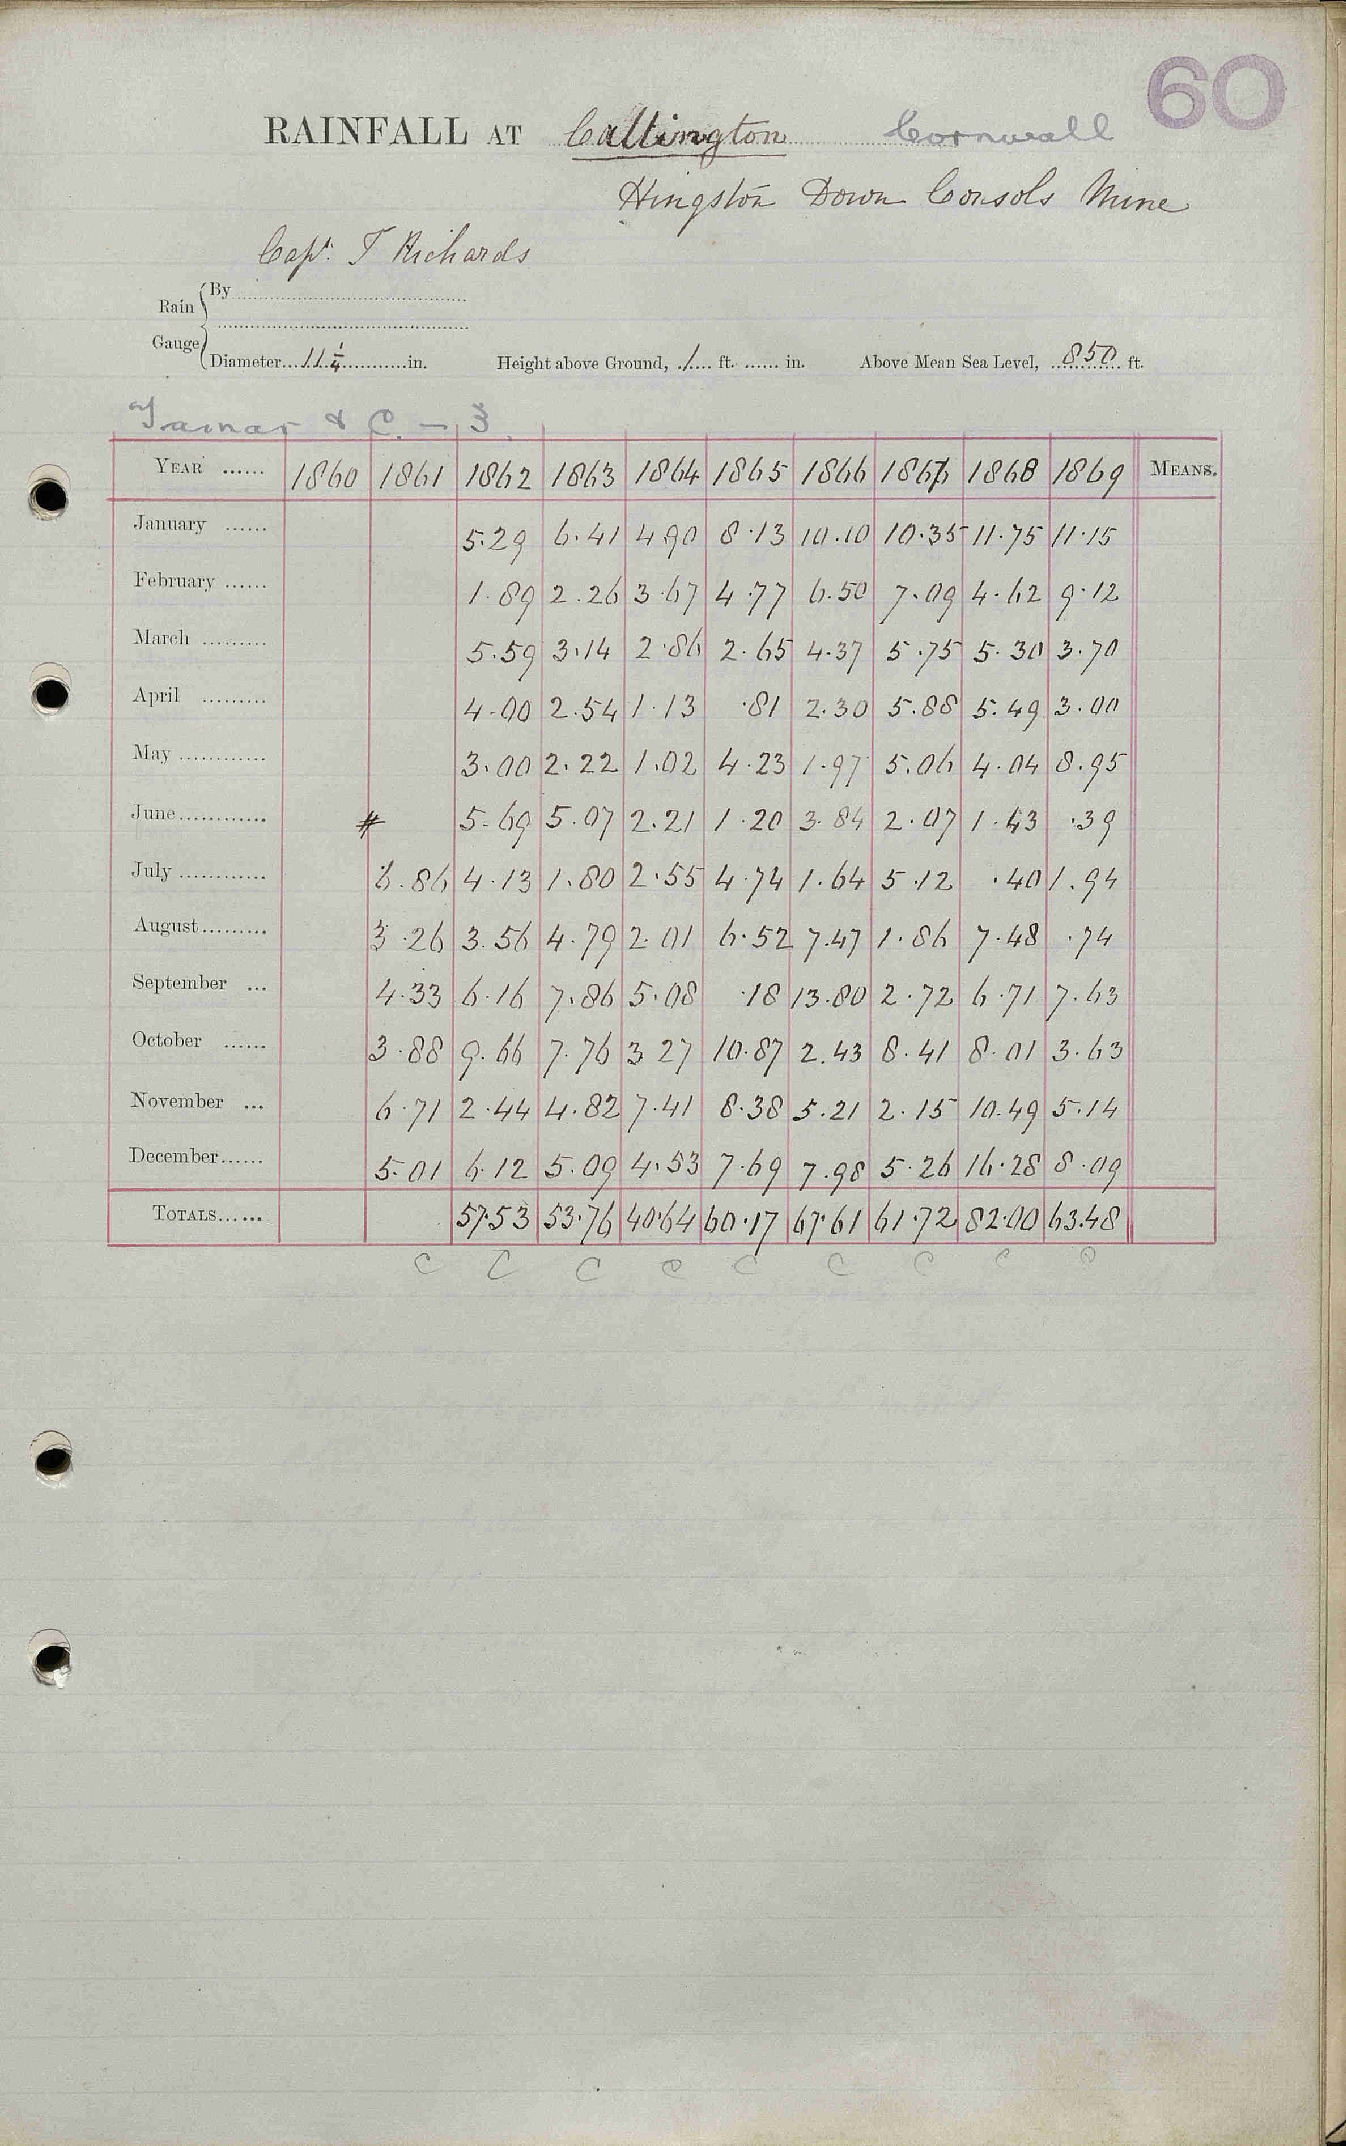 60
RAINFALL AT Callington Cornwall
Hingston Down Consols Mine
Capt. T Richards
Rain Gauge { By
Diameter 11 1/4 in. Height above Ground, 1 ft. in. Above Mean Sea Level, 850 ft.
Tamar & C. - 3.
YEAR 1860 1861 1862 1863 1864 1865 1866 1867 1868 1869 MEANS.
January 5.29 6.41 4.90 8.13 10.10 10.35 11.75 11.15
February 1.89 2.26 3.67 4.77 6.50 7.09 4.62 9.12
March 5.59 3.14 2.86 2.65 4.37 5.75 5.30 3.70
April 4.00 2.54 1.13 .81 2.30 5.88 5.49 3.00
May 3.00 2.22 1.02 4.23 1.97 5.06 4.04 8.95
June # 5.69 5.07 2.21 1.20 3.84 2.07 1.43 .39
July 6.86 4.13 1.80 2.55 4.74 1.64 5.12 .40 1.94
August 3.26 3.56 4.79 2.01 6.52 7.47 1.86 7.48 .74
September 4.33 6.16 7.86 5.08 .18 13.80 2.72 6.71 7.63
October 3.88 9.66 7.76 3 27 10.87 2.43 8.41 8.01 3.63
November 6.71 2.44 4.82 7.41 8.38 5.21 2.15 10.49 5.14
December 5.01 6.12 5.09 4.53 7.69 7.98 5.26 16.28 8.09
TOTALS 57.53 53.76 40.64 60.17 67.61 61.72 82.00 63.48
C C C C C C C C C